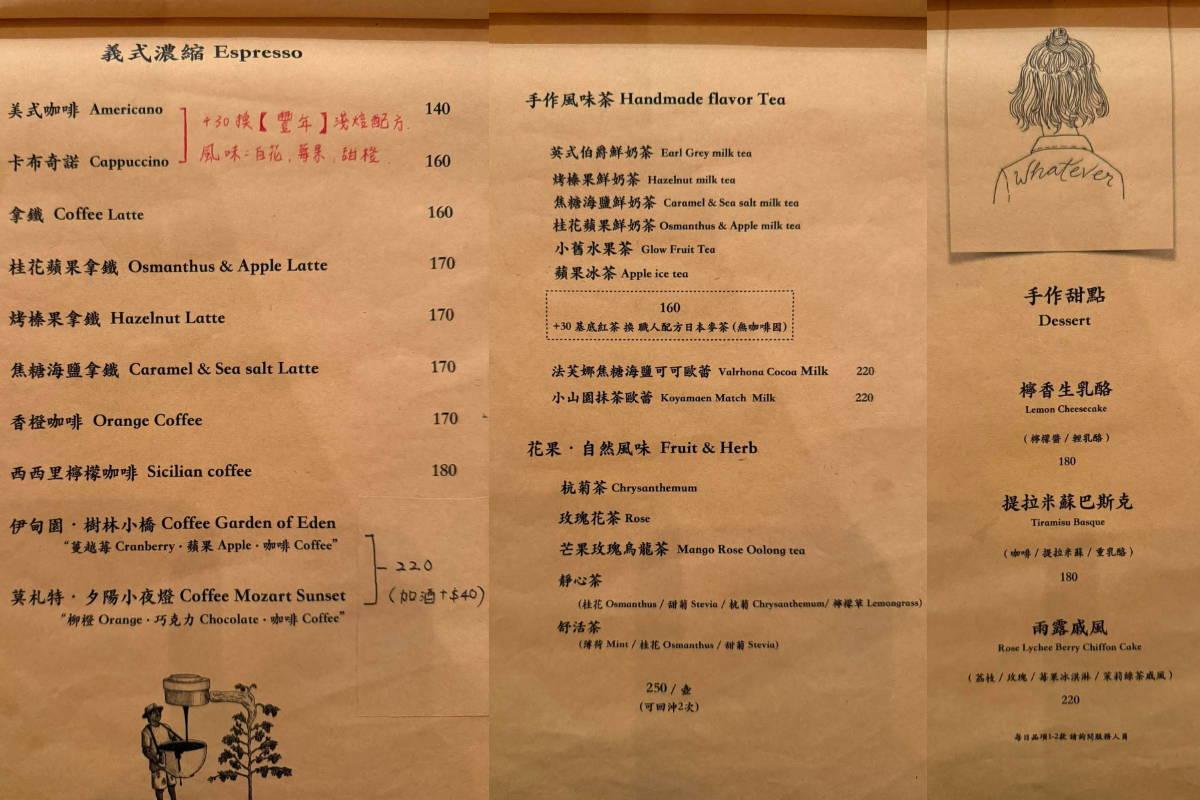 義式濃縮 Espresso
美式咖啡 Americano 140
+30 換【豐年】淺焙配方.
卡布奇諾 Cappuccino 160
風味:白花,莓果,甜橙
拿鐵 Coffee Latte 160
桂花蘋果拿鐵 Osmanthus & Apple Latte 170
烤榛果拿鐵 Hazelnut Latte 170
焦糖海鹽拿鐵 Caramel & Sea salt Latte 170
香橙咖啡 Orange Coffee 170
西西里檸檬咖啡 Sicilian coffee 180
伊甸園·樹林小橋 Coffee Garden of Eden
“蔓越莓 Cranberry·蘋果 Apple·咖啡 Coffee”
220
(加酒+$40)
莫札特·夕陽小夜燈 Coffee Mozart Sunset
“柳橙 Orange·巧克力 Chocolate·咖啡 Coffee”
手作風味茶 Handmade flavor Tea
英式伯爵鮮奶茶 Earl Grey milk tea
烤榛果鮮奶茶 Hazelnut milk tea
焦糖海鹽鮮奶茶 Caramel & Sea salt milk tea
桂花蘋果鮮奶茶 Osmanthus & Apple milk tea
小舊水果茶 Glow Fruit Tea
蘋果冰茶 Apple ice tea
160
+30 基底紅茶 換 職人配方日本麥茶 (無咖啡因)
法芙娜焦糖海鹽可可歐蕾 Valrhona Cocoa Milk 220
小山園抹茶歐蕾 Koyamaen Match Milk 220
花果·自然風味 Fruit & Herb
杭菊茶 Chrysanthemum
玫瑰花茶 Rose
芒果玫瑰烏龍茶 Mango Rose Oolong tea
靜心茶
(桂花 Osmanthus / 甜菊 Stevia / 杭菊 Chrysanthemum/ 檸檬草 Lemongrass)
舒活茶
(薄荷 Mint / 桂花 Osmanthus / 甜菊 Stevia)
250 / 壺
(可回沖2次)
Whatever
手作甜點
Dessert
檸香生乳酪
Lemon Cheesecake
(檸檬醬 / 輕乳酪)
180
提拉米蘇巴斯克
Tiramisu Basque
(咖啡 / 提拉米蘇 / 重乳酪)
180
雨露戚風
Rose Lychee Berry Chiffon Cake
(荔枝 / 玫瑰 / 莓果冰淇淋 / 茉莉綠茶戚風)
220
每日品項1-2款 請詢問服務人員